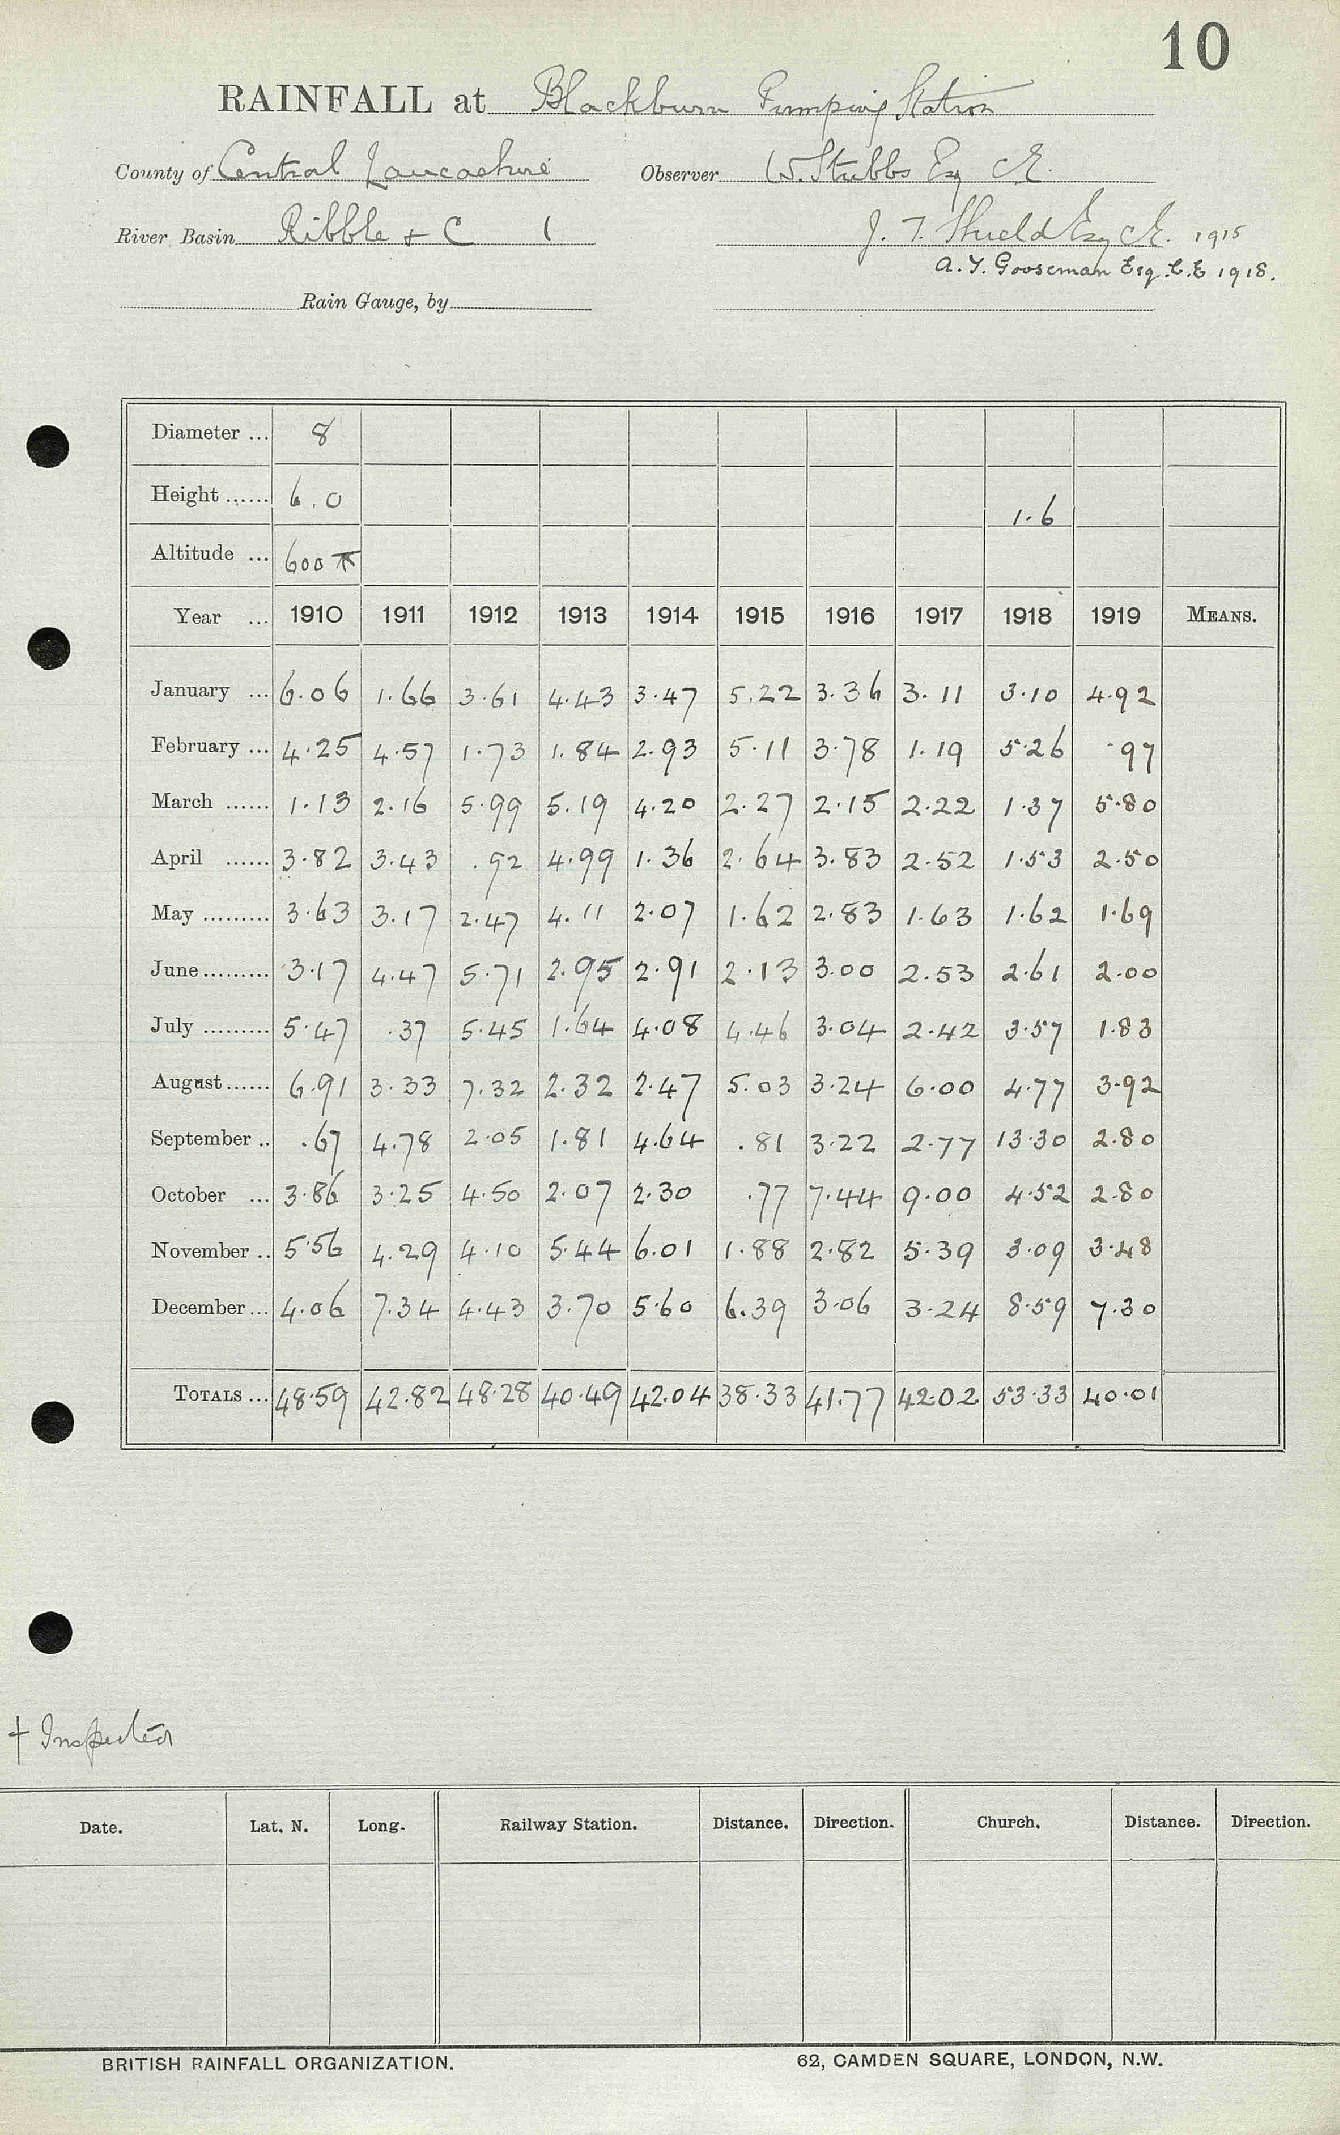 10
RAINFALL at Blackburn Pumping Station
County of Central Lancashire Observer W. Stubbs Esq C.E.
River Basin Ribble + C 1 J. T. Shield Esq C.E. 1915
A. T. Gooseman Esq. C.E 1918.
Rain Gauge, by
Diameter ... 8
Height ...... 6.0 1.6
Altitude ... 600
Year ... 1910 1911 1912 1913 1914 1915 1916 1917 1918 1919 MEANS.
January ... 6.06 1.66 3.61 4.43 3.47 5.22 3.36 3.11 3.10 4.92
February ... 4.25 4.57 1.73 1.84 2.93 5.11 3.78 1.19 5.26 .97
March ...... 1.13 2.16 5.99 5.19 4.20 2.27 2.15 2.22 1.37 5.80
April ...... 3.82 3.43 .92 4.99 1.36 2.64 3.83 2.52 1.53 2.50
May ......... 3.63 3.17 2.47 4.11 2.07 1.62 2.83 1.63 1.62 1.69
June ......... 3.17 4.47 5.71 2.95 2.91 2.13 3.00 2.53 2.61 2.00
July ......... 5.47 .37 5.45 1.64 4.08 4.46 3.04 2.42 3.57 1.83
August ...... 6.91 3.33 7.32 2.32 2.47 5.03 3.24 6.00 4.77 3.92
September .. .67 4.78 2.05 1.81 4.64 .81 3.22 2.77 13.30 2.80
October ... 3.86 3.25 4.50 2.07 2.30 .77 7.44 9.00 4.52 2.80
November .. 5.56 4.29 4.10 5.44 6.01 1.88 2.82 5.39 3.09 3.48
December ... 4.06 7.34 4.43 3.70 5.60 6.39 3.06 3.24 8.59 7.30
TOTALS ... 48.59 42.82 48.28 40.49 42.04 38.33 41.77 42.02 53.33 40.01
† Inspected
Date. Lat. N. Long. Railway Station. Distance. Direction. Church. Distance. Direction.
BRITISH RAINFALL ORGANIZATION. 62, CAMDEN SQUARE, LONDON, N.W.